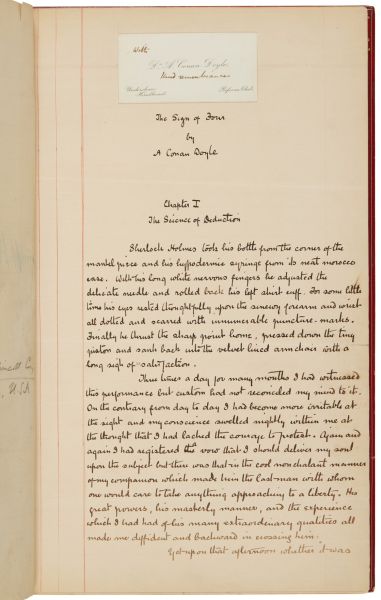 With
Dr A. Conan Doyle
kind remembrances
Undershaw
Hindhead.
Reform Club.
The Sign of Four
by
A Conan Doyle
Chapter I
The Science of Deduction
Sherlock Holmes took his bottle from the corner of the
mantel piece and his hypodermic syringe from its neat morocco
case. With his long white nervous fingers he adjusted the
delicate needle and rolled back his left shirt cuff. For some little
time his eyes rested thoughtfully upon the sinewy forearm and wrist
all dotted and scarred with innumerable puncture-marks.
Finally he thrust the sharp point home, pressed down the tiny
piston and sank back into the velvet lined armchair with a
long sigh of satisfaction.
Three times a day for many months I had witnessed
this performance but custom had not reconciled my mind to it.
On the contrary from day to day I had become more irritable at
the sight and my conscience swelled nightly within me at
the thought that I had lacked the courage to protest. Again and
again I had registered the vow that I should deliver my soul
upon the subject but there was that in the cool nonchalant manner
of my companion which made him the last man with whom
one would care to take anything approaching to a liberty. His
great powers, his masterly manner, and the experience
which I had had of his many extraordinary qualities all
made me diffident and backward in crossing him.
Yet upon that afternoon whether it was
USA